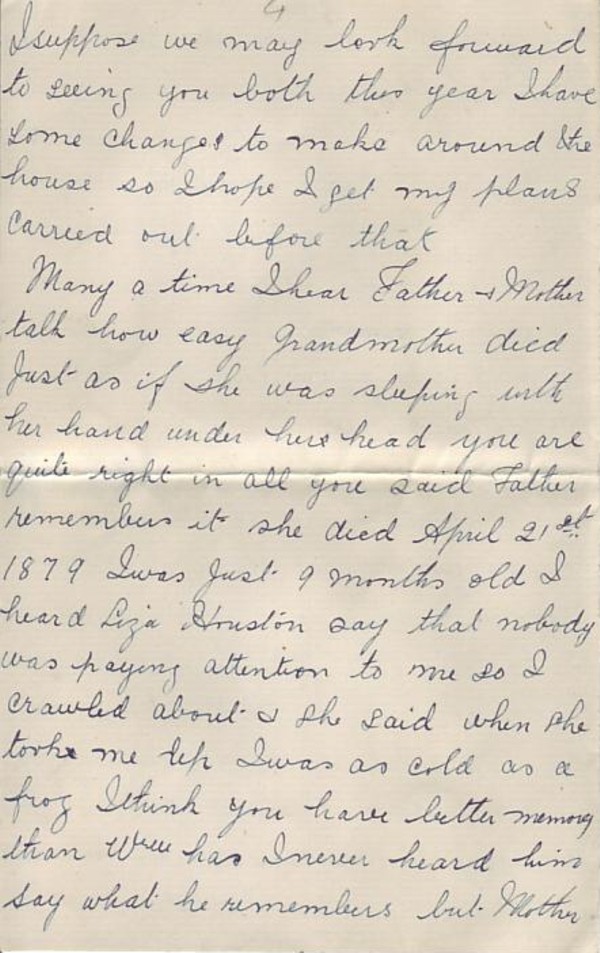 4
I suppose we may look forward
to seeing you both this year I have
some changes to make around the
house so I hope I get my plans
carried out before that
Many a time I hear Father & Mother
talk how easy Grandmother died
Just as if she was sleeping with
her hand under her head you are
quite right in all you said Father
remembers it she died April 21st
1879 I was Just 9 months old I
heard Liza Houston say that nobody
was paying attention to me so I
crawled about & she said when she
took me up I was as cold as a
frog I think you have better memory
than has I never heard him
say what he remembers but Mother